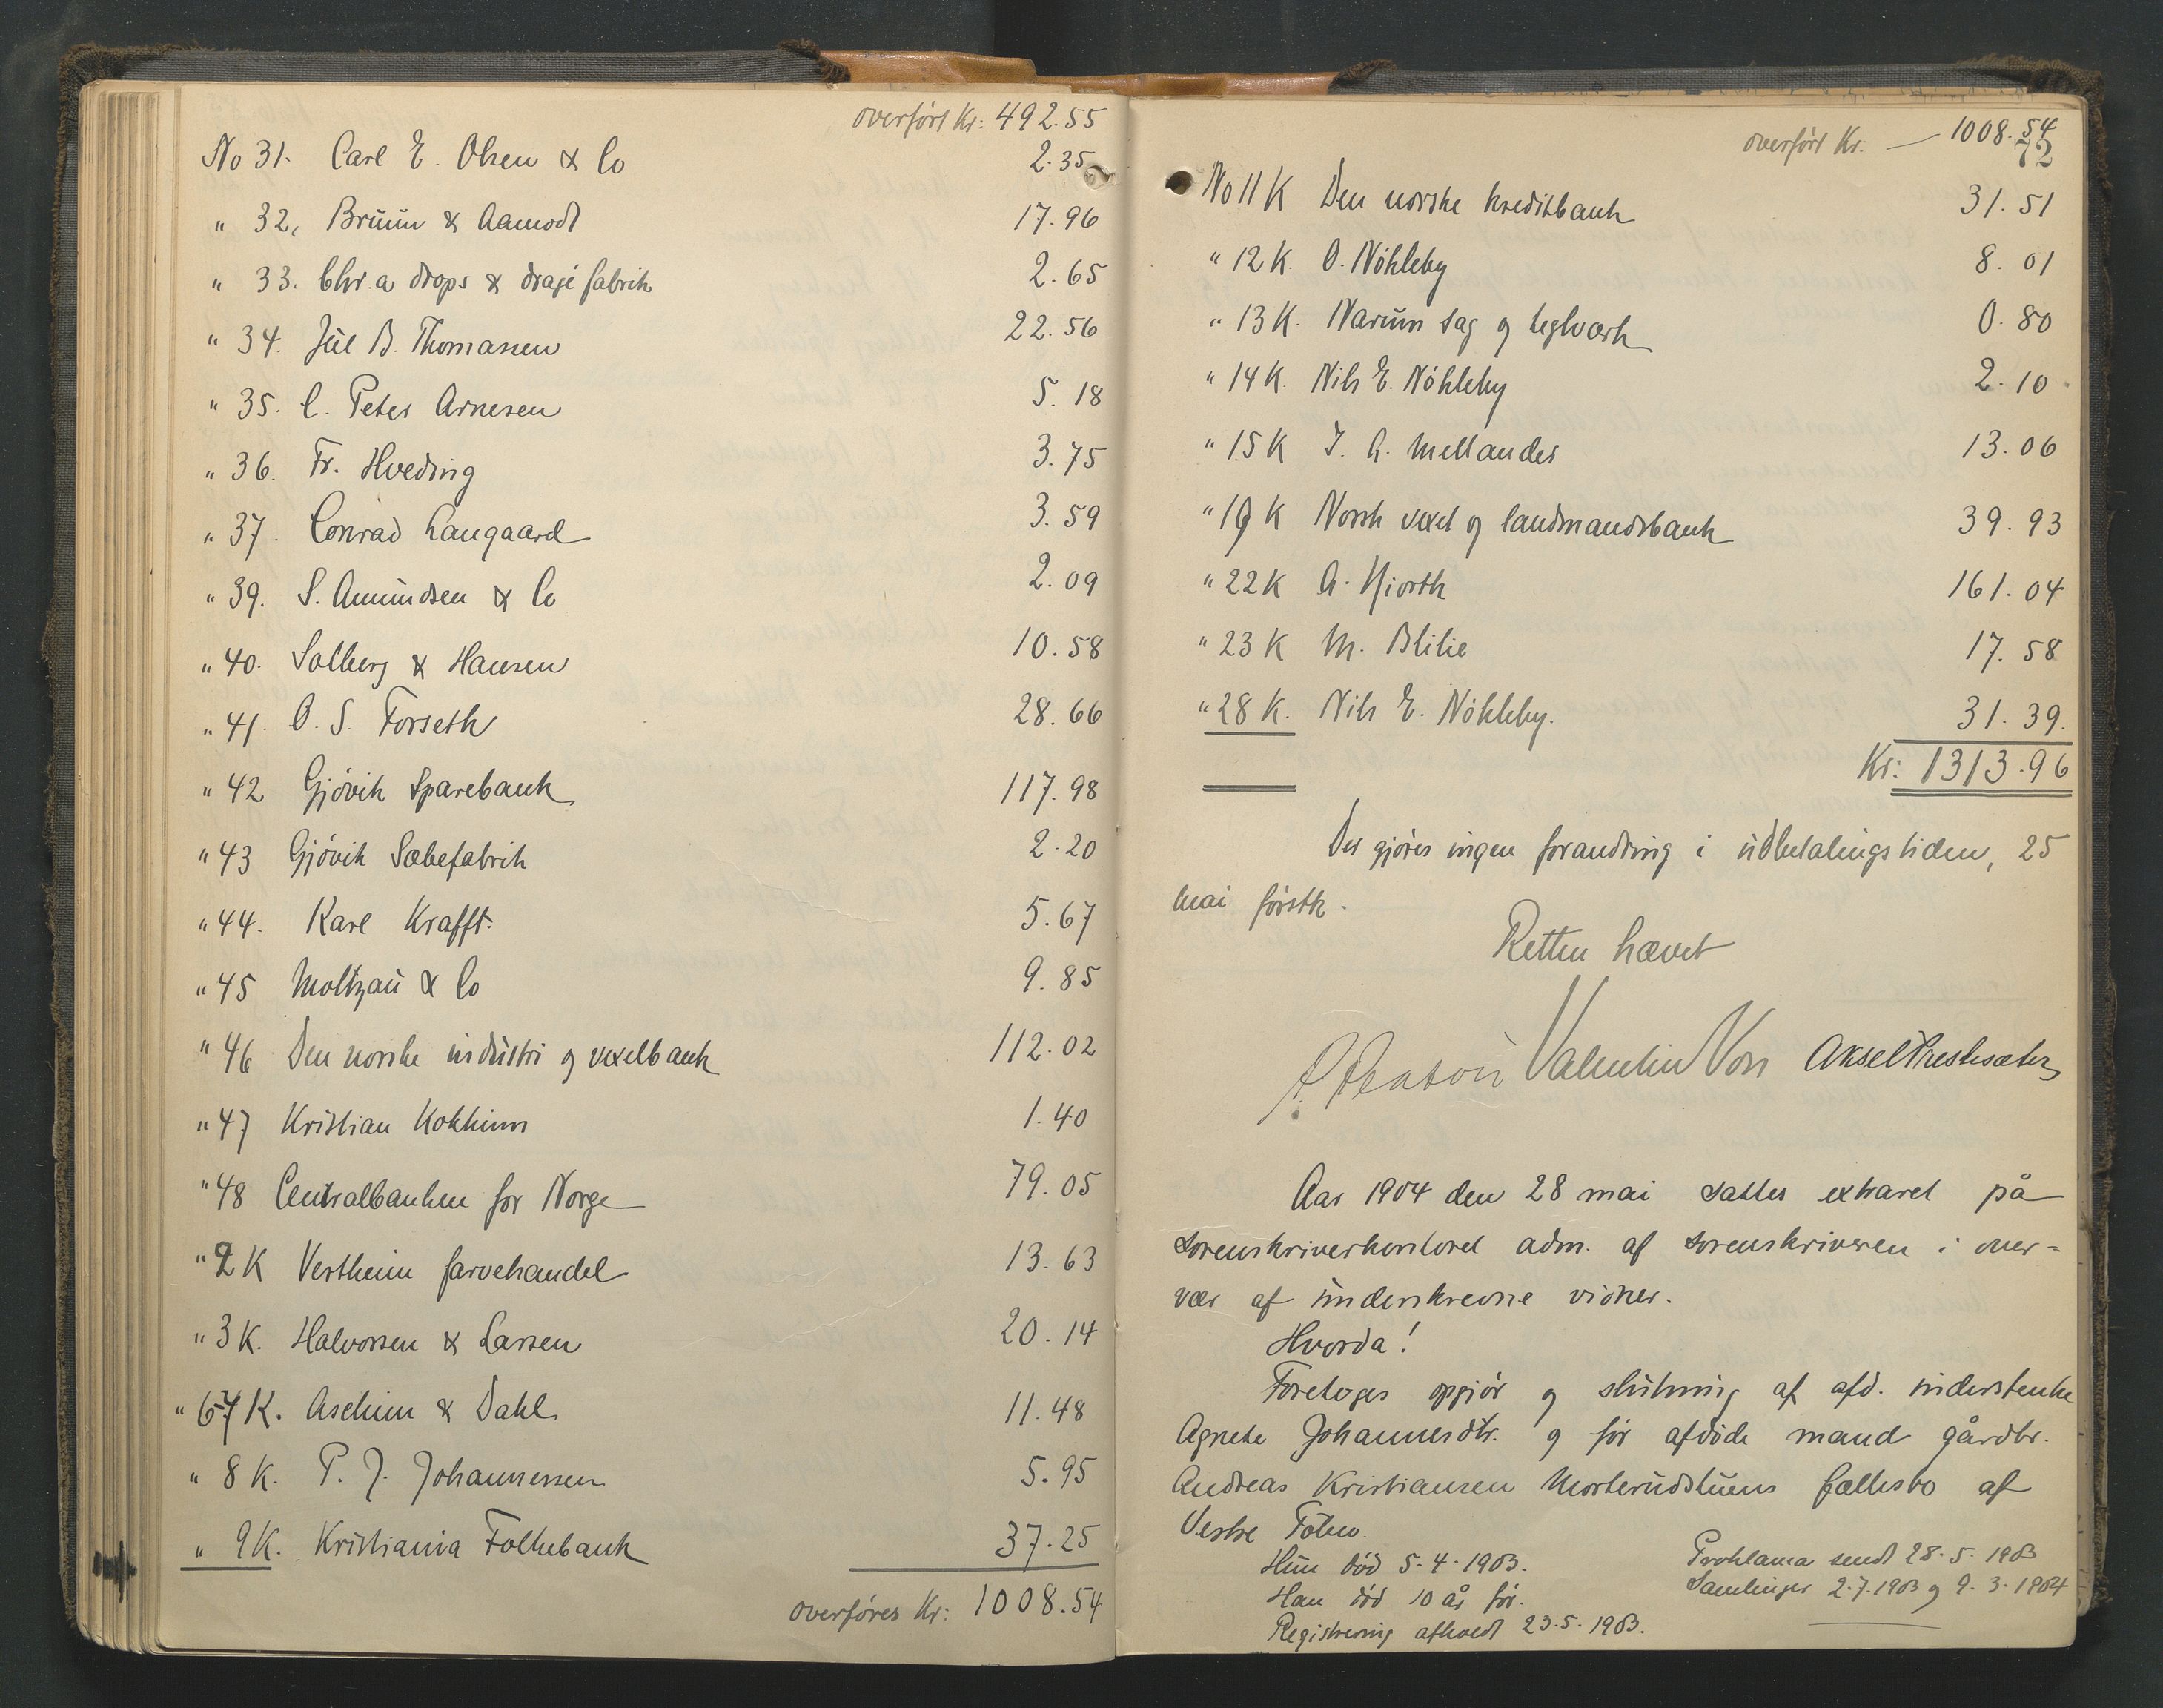 overført Kr: 492.55
No 31. Carl E. Olsen & Co 2.35
" 32, Bruun & Aamodt 17.96
" 33. Chr.a drops & dragé fabrik 2.65
" 34. Jul B. Thomassen 22.56
" 35. C. Peter Arnesen 5.18
" 36. Fr. Hveding 3.75
" 37. Conrad Langaard 3.59
" 39. S. Amundsen & Co 2.09
" 40. Solberg & Hansen 10.58
" 41. O. S. Forseth 28.66
" 42 Gjövik Sparebank 117.98
" 43 Gjövik Sæbefabrik 2.20
" 44. Karl Krafft. 5.67
" 45 Moltzau & Co 9.85
" 46 Den norske industri og vexelbank 112.02
" 47 Kristian Kokkim 1.40
" 48 Centralbanken for Norge 79.05
" 2 K Vertheim farvehandel 13.63
" 3 K. Halvorsen & Larsen 20.14
" 67 K. Aschim & Dahl 11.48
" 8 K. P. J. Johannessen 5.95
" 9 K. Kristiania Folkebank 37.25
overføres Kr: 1008.54
overført Kr. — 1008.54
72
No 11 K Den norske kreditbank 31.51
" 12 K. O. Nöhleby 8.01
" 13 K. Narum sag og teglværk 0.80
" 14 K. Nils E. Nöhleby 2.10
" 15 K J. A. Mellander 13.06
" 19 K Norsk vexel og landmandsbank 39.93
" 22 K A. Hiorth 161.04
" 23 K M. Blilie 17.58
" 28 K. Nils E. Nöhleby. 31.39.
Kr: 1313.96
Der gjöres ingen forandring i udbetalingstiden, 25
mai førstk.
Retten hævet
Valentin Voss Aksel Prestesæter
Aar 1904 den 28 mai sattes extraret på
sorenskriverkontoret adm. af sorenskriveren i over=
vær af underskrevne vidner.
Hvorda!
Foretoges opgjör og slutning af afd. inderstenke
Agnete Johannesdtr. og før afdöde mand gårdbr.
Andreas Kristiansen Morterudstuens fællesbo af
Vestre Toten.
Hun död 5-4-1903.
Han död 10 år för.
Registrering afholdt 23.5.1903.
Proklama sendt 28.5.1903
Samlinger 2.7.1903 og 9.3.1904